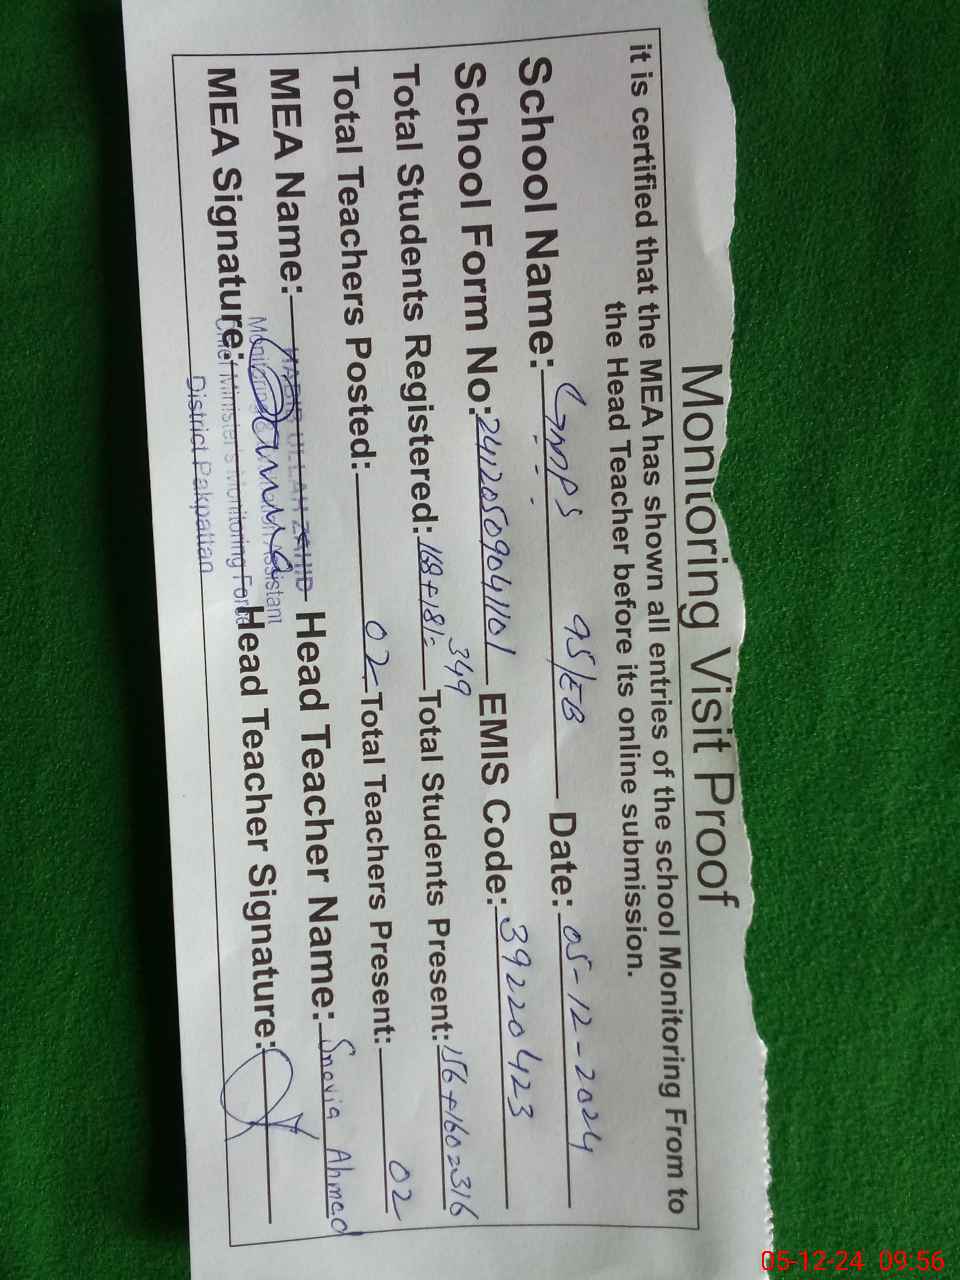 Monitoring Visit Proof
it is certified that the MEA has shown all entries of the school Monitoring From to
the Head Teacher before its online submission.
School Name: GMPS 95/EB Date: 05-12-2024
School Form No: 24120509041101 EMIS Code: 39220423
Total Students Registered: 168+181=349 Total Students Present: 156+160=316
Total Teachers Posted: 02 Total Teachers Present: 02
MEA Name: ULLAH ZAHID Head Teacher Name: Snovia Ahmed
Monitoring Assistant
MEA Signature: Head Teacher Signature:
Chief Minister's Monitoring Force
District Pakpattan
05-12-24 09:56